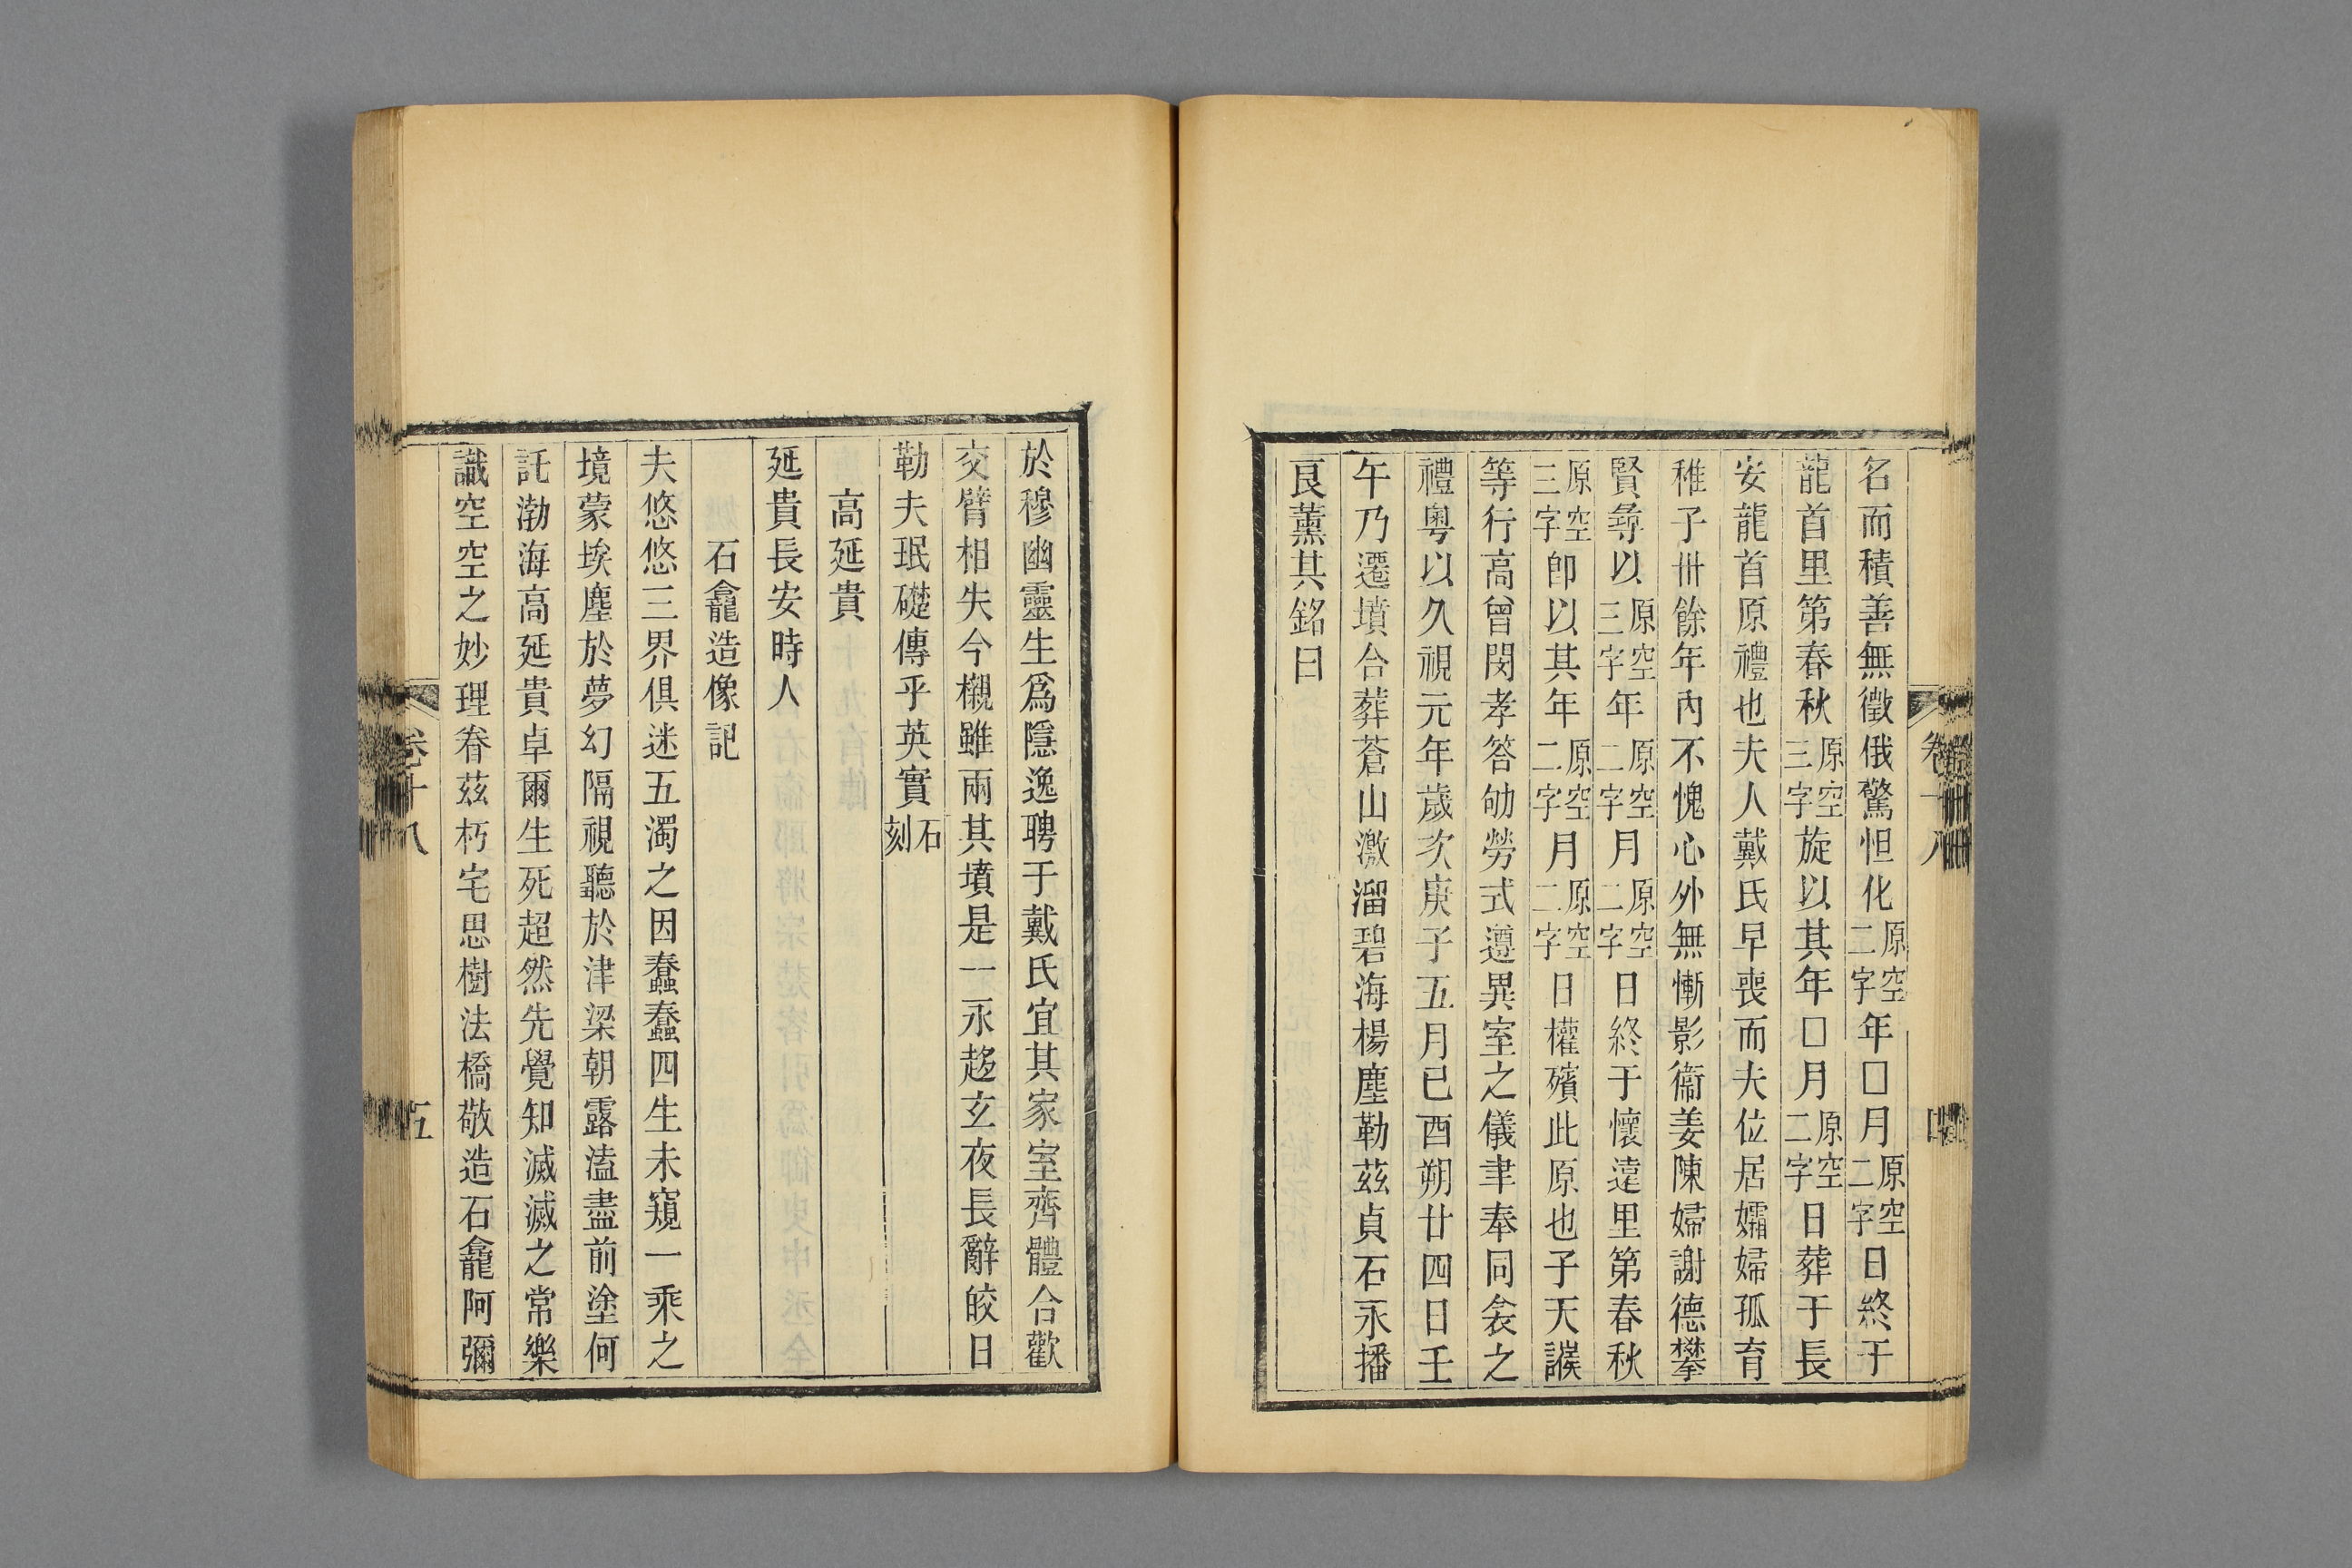 名而積善無徵俄驚怛化原空二字年□月原空二字日終于
龍首里第春秋原空三字旋以其年□月原空二字日葬于長
安龍首原禮也夫人戴氏早喪而夫位居孀婦孤育
稚子卅餘年內不愧心外無慚影衞姜陳婦謝德攀
賢尋以原空三字年原空二字月原空二字日終于懷遠里第春秋
原空三字卽以其年原空二字月原空二字日權殯此原也子天護
等行高曾閔孝答劬勞式遵異室之儀聿奉同衾之
禮粵以久視元年歲次庚子五月己酉朔廿四日壬
午乃遷墳合葬蒼山激溜碧海楊塵勒茲貞石永播
艮薰其銘曰
卷十八
四
於穆幽靈生爲隱逸聘于戴氏宜其家室齊體合歡
交臂相失今櫬雖兩其墳是一永趍玄夜長辭皎日
勒夫珉礎傳乎英實石刻
高延貴
延貴長安時人
石龕造像記
夫悠悠三界俱迷五濁之因蠢蠢四生未窺一乘之
境蒙埃塵於夢幻隔視聽於津梁朝露溘盡前塗何
託渤海高延貴卓爾生死超然先覺知滅滅之常樂
識空空之妙理眷茲朽宅思樹法橋敬造石龕阿彌
卷十八
五